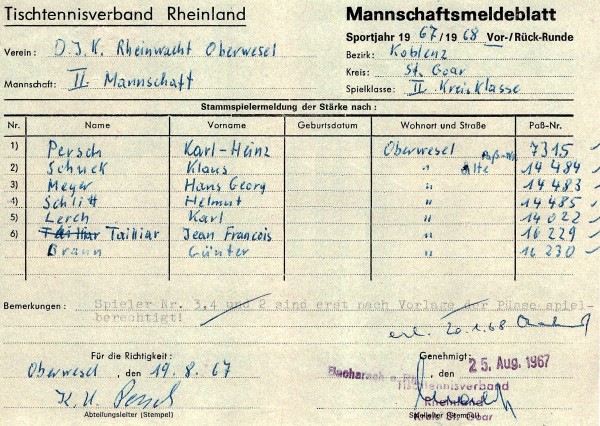 Tischtennisverband Rheinland
Mannschaftsmeldeblatt
Sportjahr 1967/1968 Vor-/Rück-Runde
Verein: D.J.K. Rheinwacht Oberwesel
Bezirk: Koblenz
Kreis: St. Goar
Mannschaft: II. Mannschaft
Spielklasse: II Kreisklasse
Stammspielermeldung der Stärke nach:
Nr. Name Vorname Geburtsdatum Wohnort und Straße Paß-Nr.
1) Persch Karl-Heinz Oberwesel 7315
2) Schuck Klaus " alte Paß-Nr. 14 484
3) Meyer Hans Georg " 14 483
4) Schlitt Helmut " 14 485
5) Lerch Karl " 14 022
6) Tailliar Jean Francois " 16 229
Braun Günter " 16 230
Bemerkungen: Spieler Nr. 3,4 und 2 sind erst nach Vorlage der Pässe spiel-
berechtigt!
erl. 20.1.68
Für die Richtigkeit:
Genehmigt:
Oberwesel, den 19.8.67
Bacharach, den 25. Aug. 1967
Tischtennisverband
Rheinland
Kreis St. Goar
Abteilungsleiter (Stempel)
Spielleiter (Stempel)